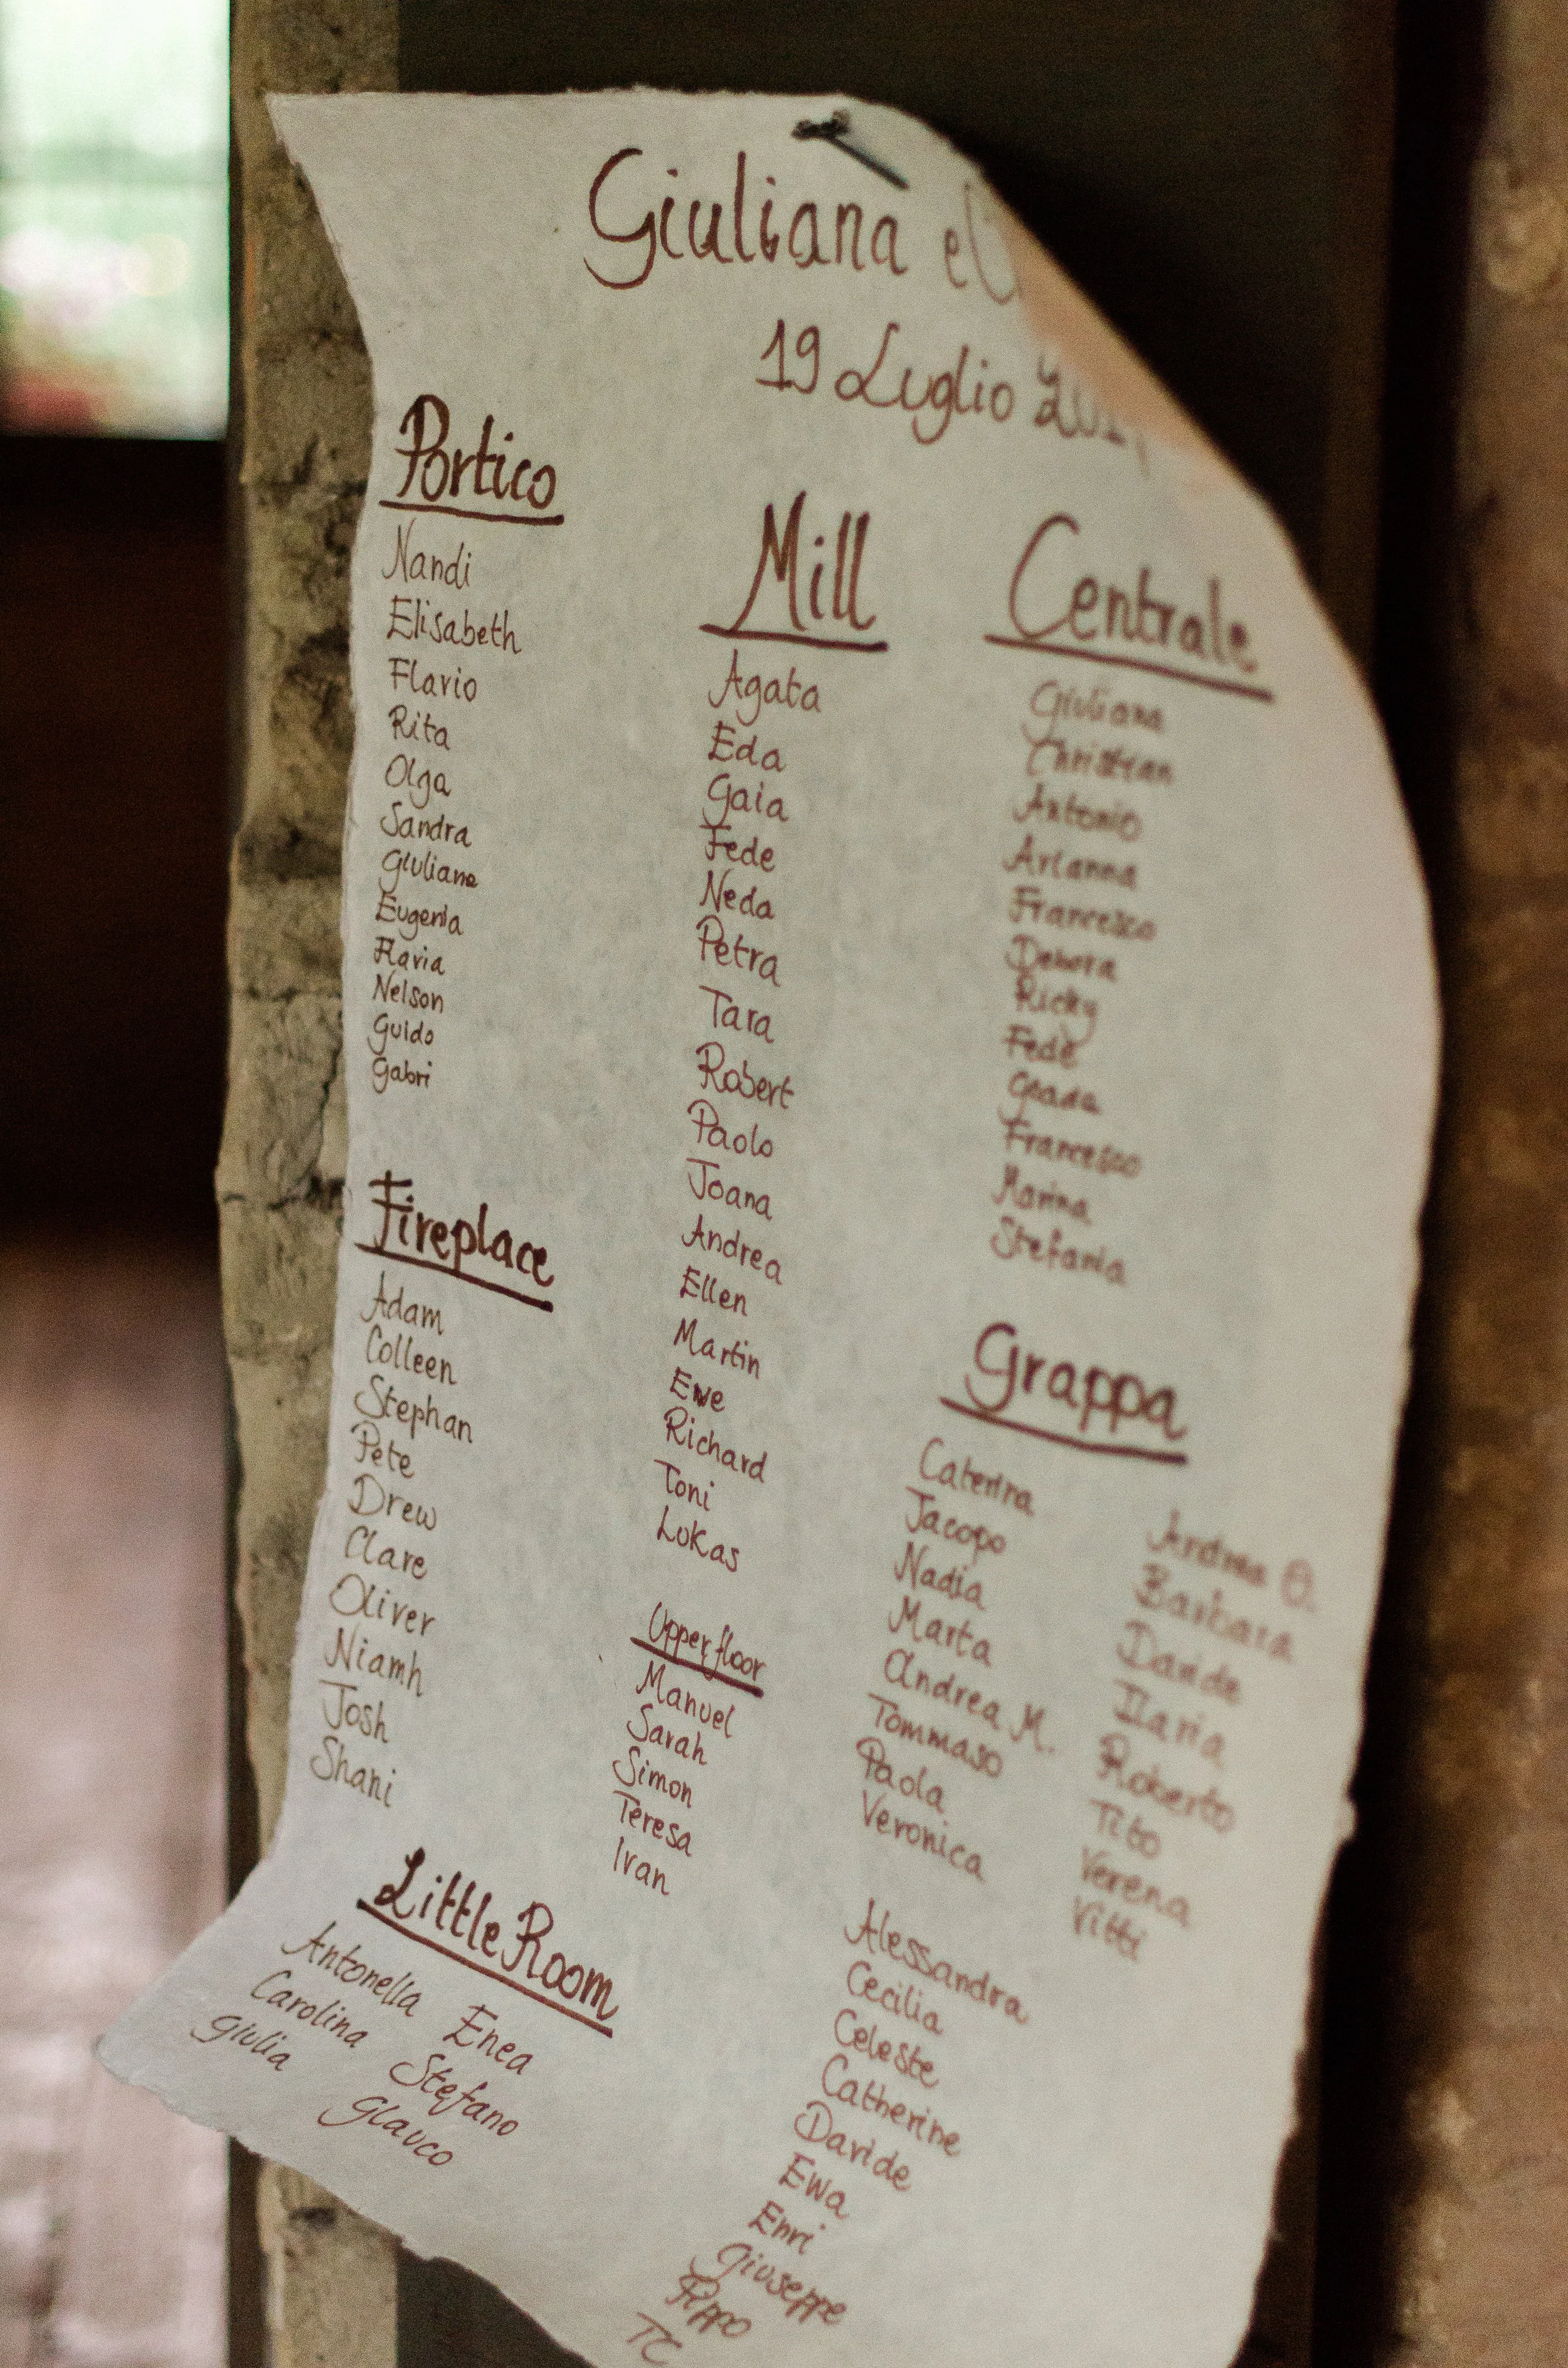 Giuliana e
19 Luglio
Portico
Nandi
Elisabeth
Flavio
Rita
Olga
Sandra
Giuliana
Eugenia
Flavia
Nelson
Guido
Gabri
Fireplace
Adam
Colleen
Stephan
Pete
Drew
Clare
Oliver
Niamh
Josh
Shani
Little Room
Antonella
Carolina
Giulia
Enea
Stefano
Glauco
Mill
Agata
Eda
Gaia
Fede
Neda
Petra
Tara
Robert
Paolo
Joana
Andrea
Ellen
Martin
Ewe
Richard
Toni
Lukas
Upper floor
Manuel
Sarah
Simon
Teresa
Ivan
Centrale
Giuliana
Christian
Antonio
Arianna
Francesco
Debora
Ricky
Fede
Francesco
Marina
Stefania
Grappa
Caterina
Jacopo
Nadia
Marta
Andrea M.
Tommaso
Paola
Veronica
Andrea O.
Barbara
Davide
Ilaria
Roberto
Tito
Verena
Vitti
Alessandra
Cecilia
Celeste
Catherine
Davide
Ewa
Enri
Giuseppe
Pippo
TC